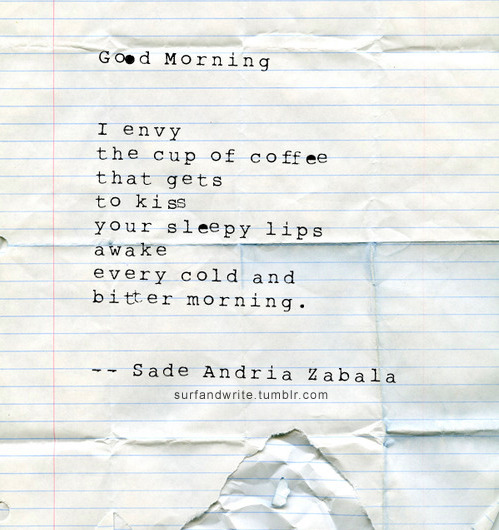 Good Morning
I envy
the cup of coffee
that gets
to kiss
your sleepy lips
awake
every cold and
bitter morning.
-- Sade Andria Zabala
surfandwrite.tumblr.com